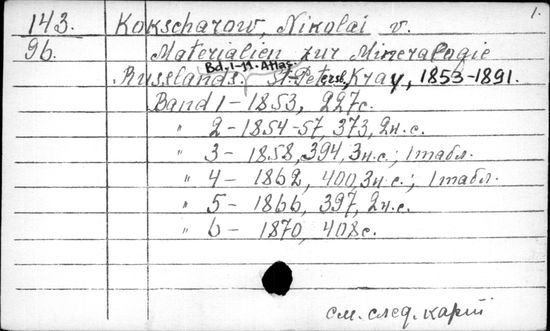 1.
143. Kokscharow, Nikolai v.
96. Materialien zur Mineralogie
Bd. 1-11. Atlas.
Russlands. St. Petersb, Kray, 1853-1891.
Band 1 - 1853, 227с.
" 2 - 1854-57, 373, 2н.с.
" 3 - 1858, 394, 3н.с.; 1табл.
" 4 - 1862, 400, 3н.с.; 1табл.
" 5 - 1866, 397, 2н.с.
" 6 - 1870, 408с.
см. след. карт